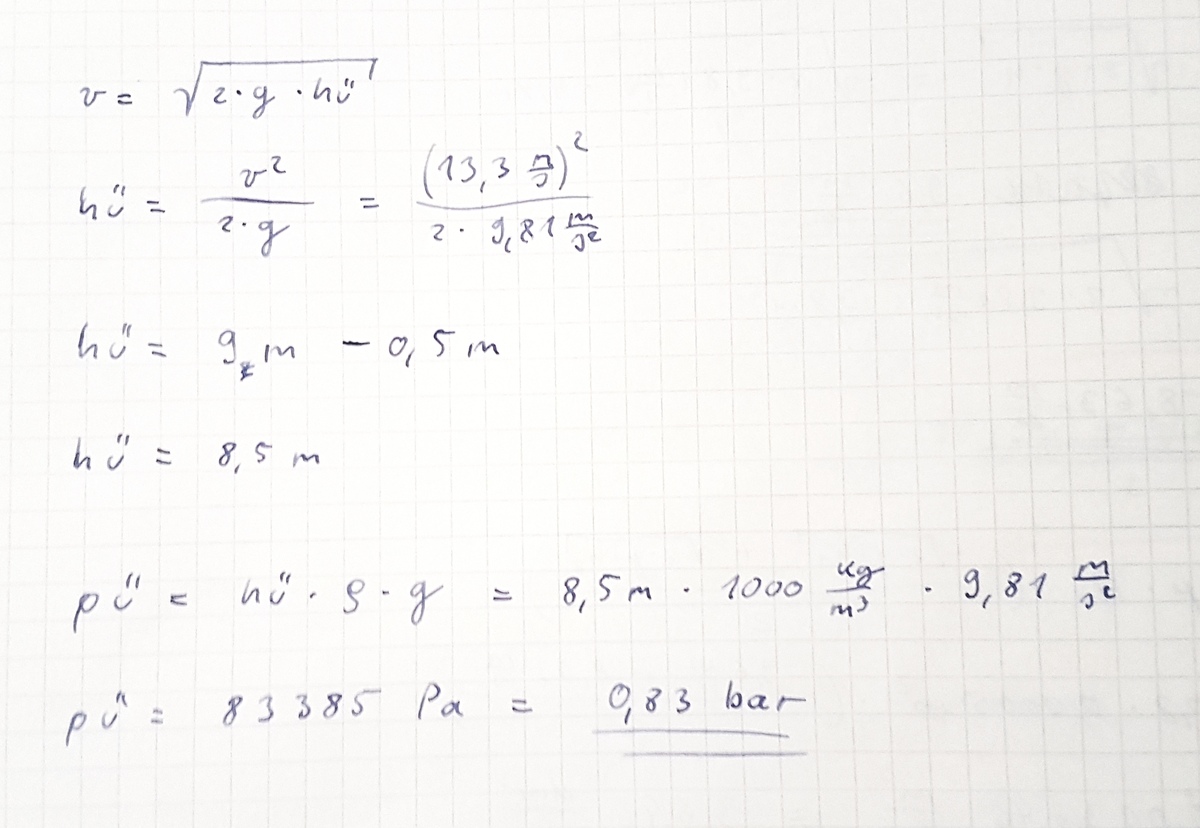 v = √(2 · g · hü)
hü = v² / (2 · g) = (13,3 m/s)² / (2 · 9,81 m/s²)
hü = 9 m − 0,5 m
hü = 8,5 m
pü = hü · ρ · g = 8,5 m · 1000 kg/m³ · 9,81 m/s²
pü = 83385 Pa = 0,83 bar